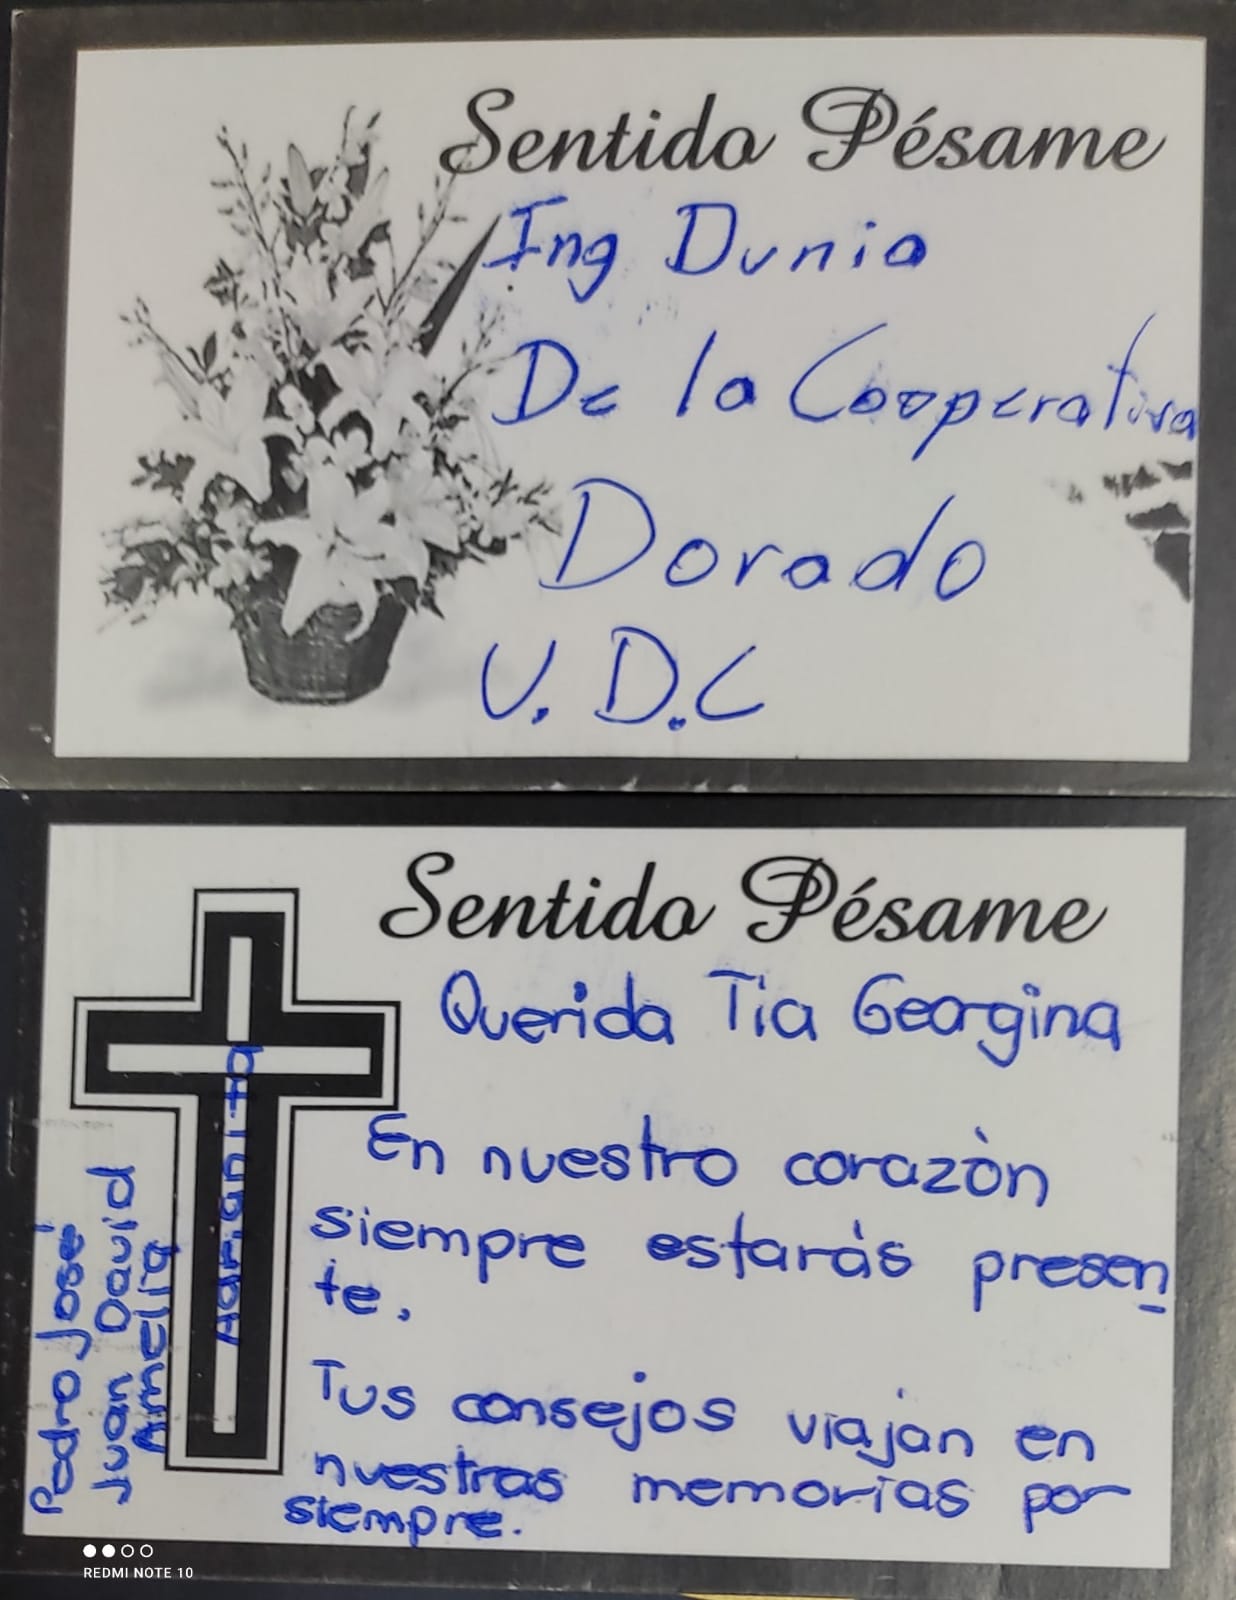 Sentido Pésame
Ing Dunia
De la Cooperativa
Dorado
U.D.C
Sentido Pésame
Querida Tia Georgina
En nuestro corazòn
siempre estaràs presen
te.
Tus consejos viajan en
nuestras memorias por
siempre.
Pedro José
Juan David
Amelia
Adrianita
REDMI NOTE 10